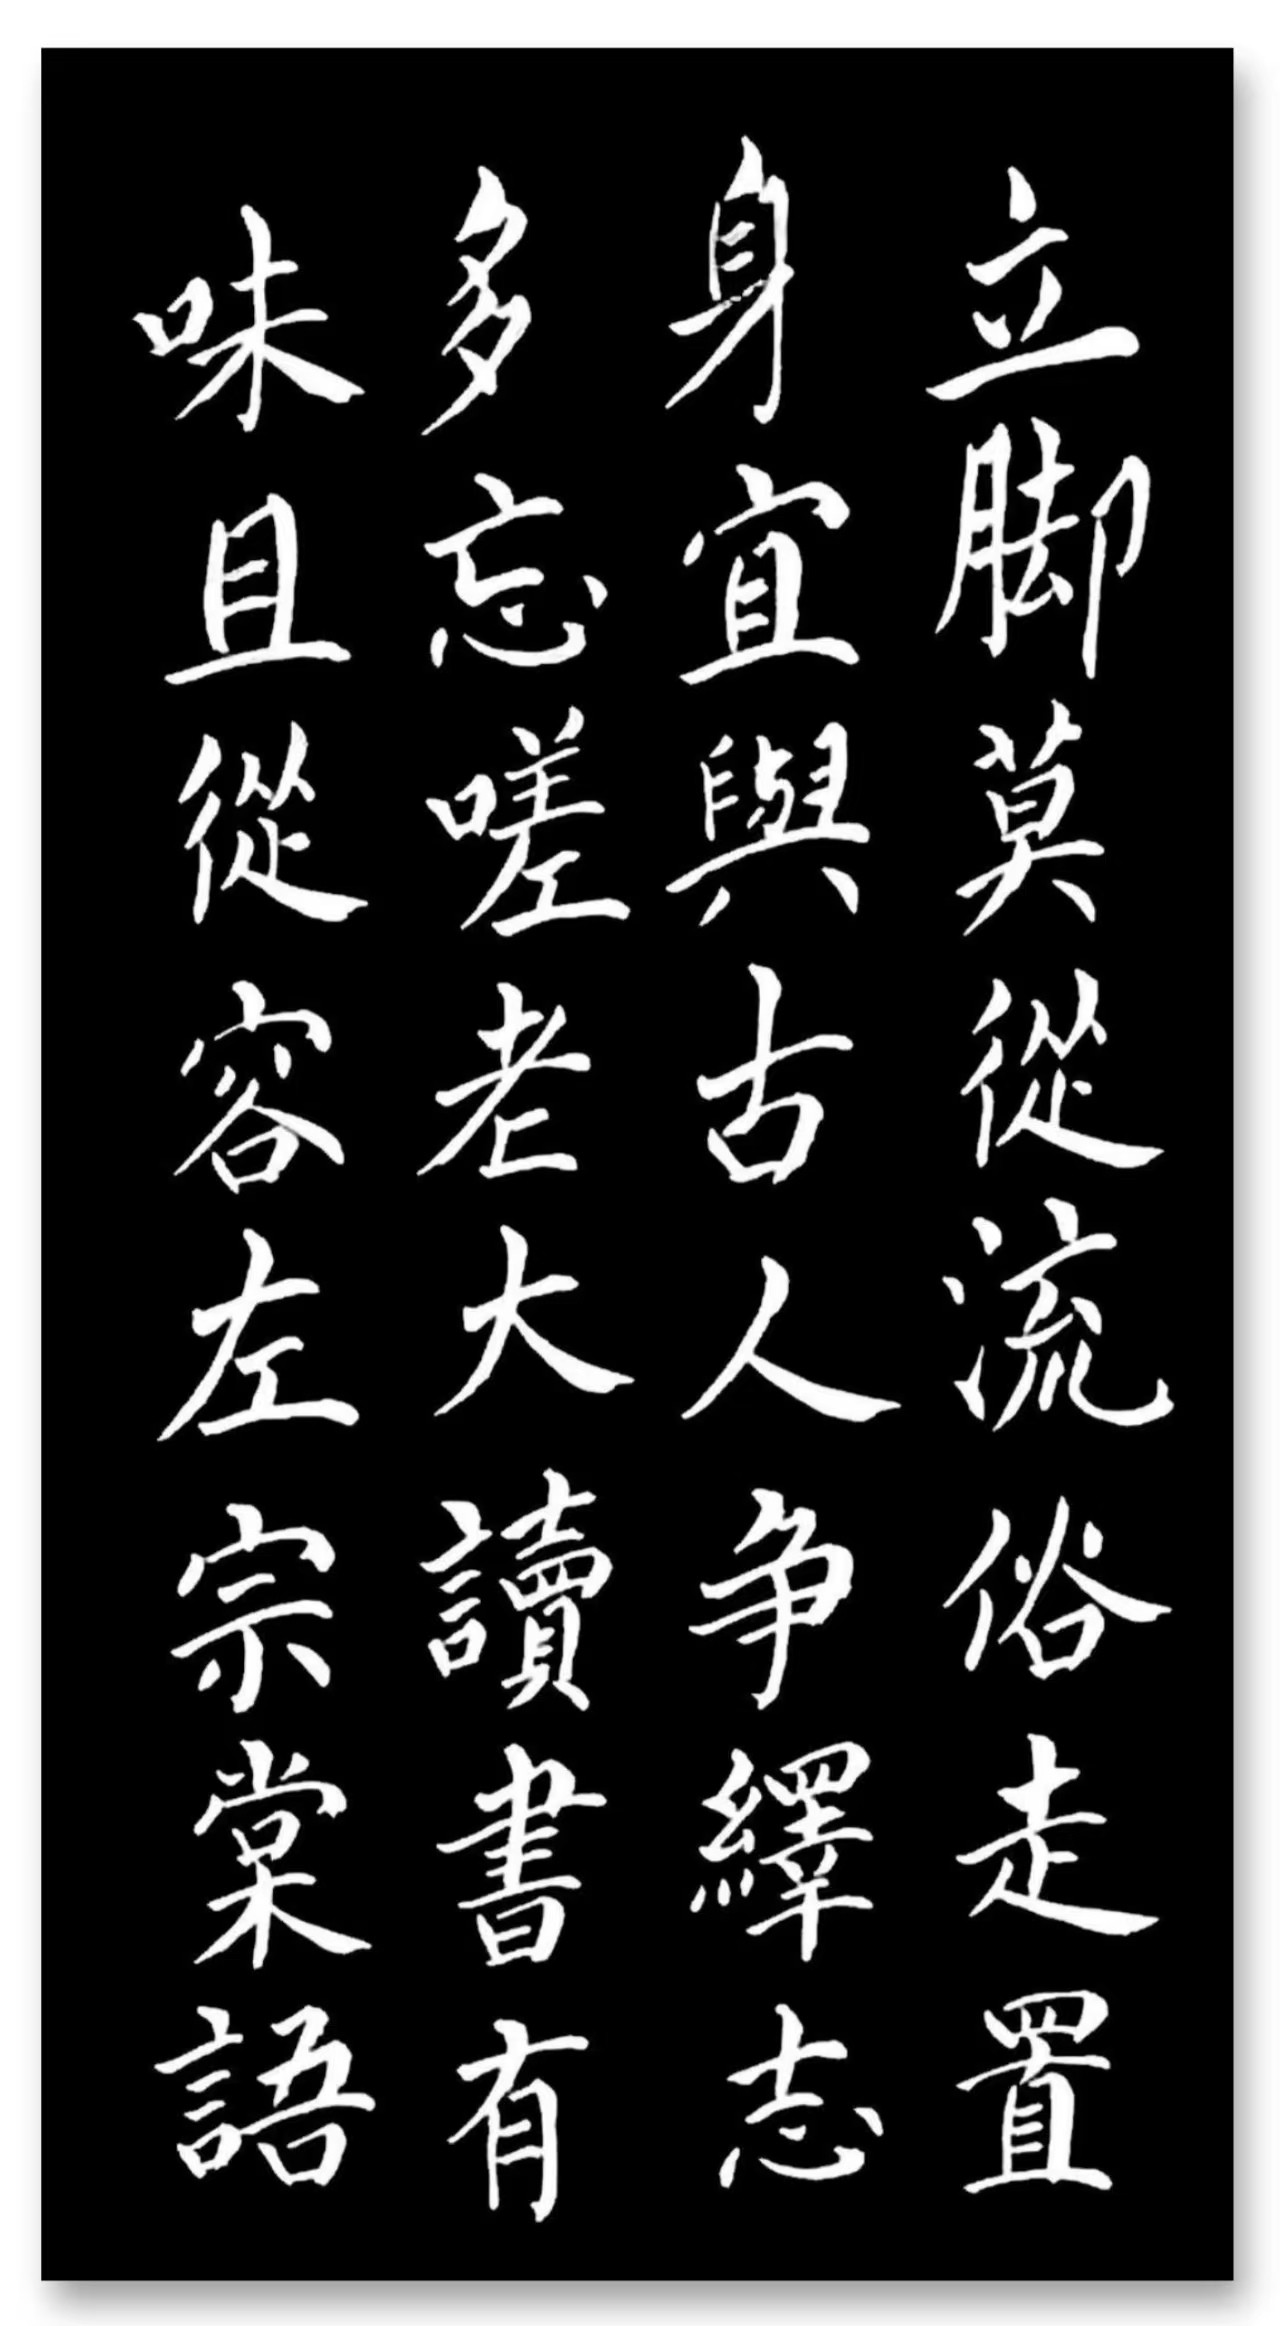 立脚莫從流俗走置
身宜與古人争繹志
多忘嗟老大讀書有
味且從容左宗棠語